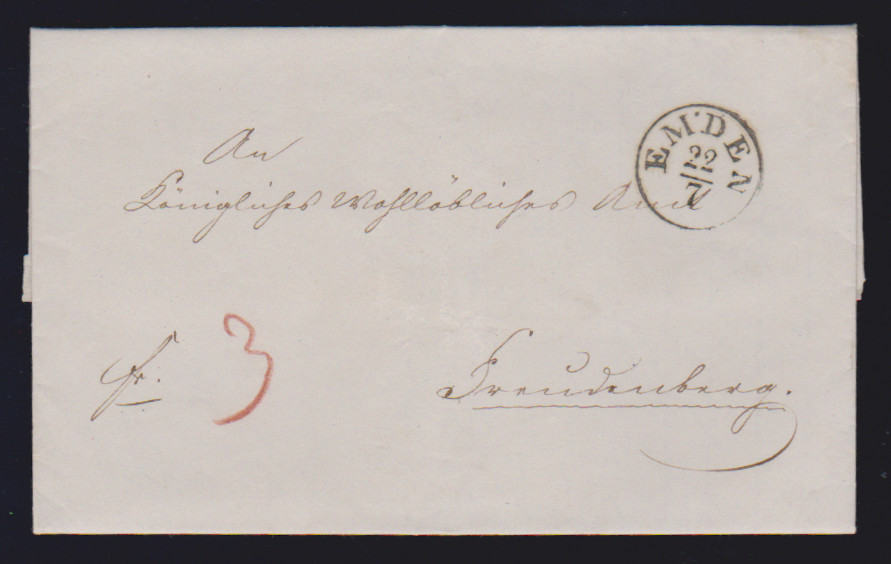 An
Königliches Wohllöbliches Amt
EMDEN
22
7
fr. 3
Freudenberg.